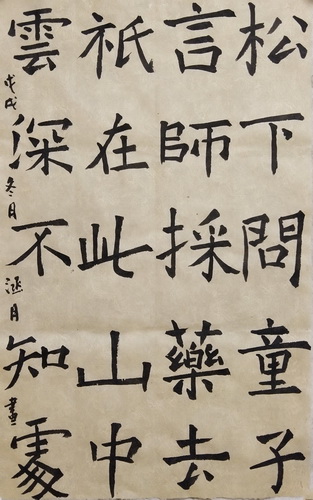 松下問童子
言師採藥去
祇在此山中
雲深不知處
戊戌冬月涵月書